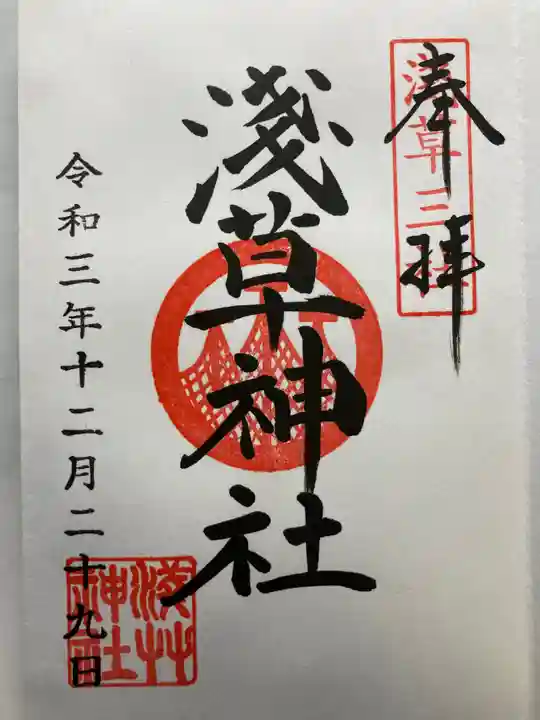 奉拝
淺草三社
淺草神社
令和三年十二月二十九日
淺草神社